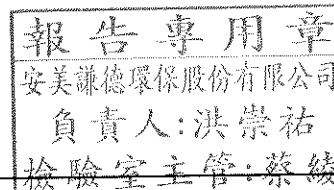 報告專用章
安美謙德環保股份有限公司
負責人:洪崇祐
檢驗室主管:蔡